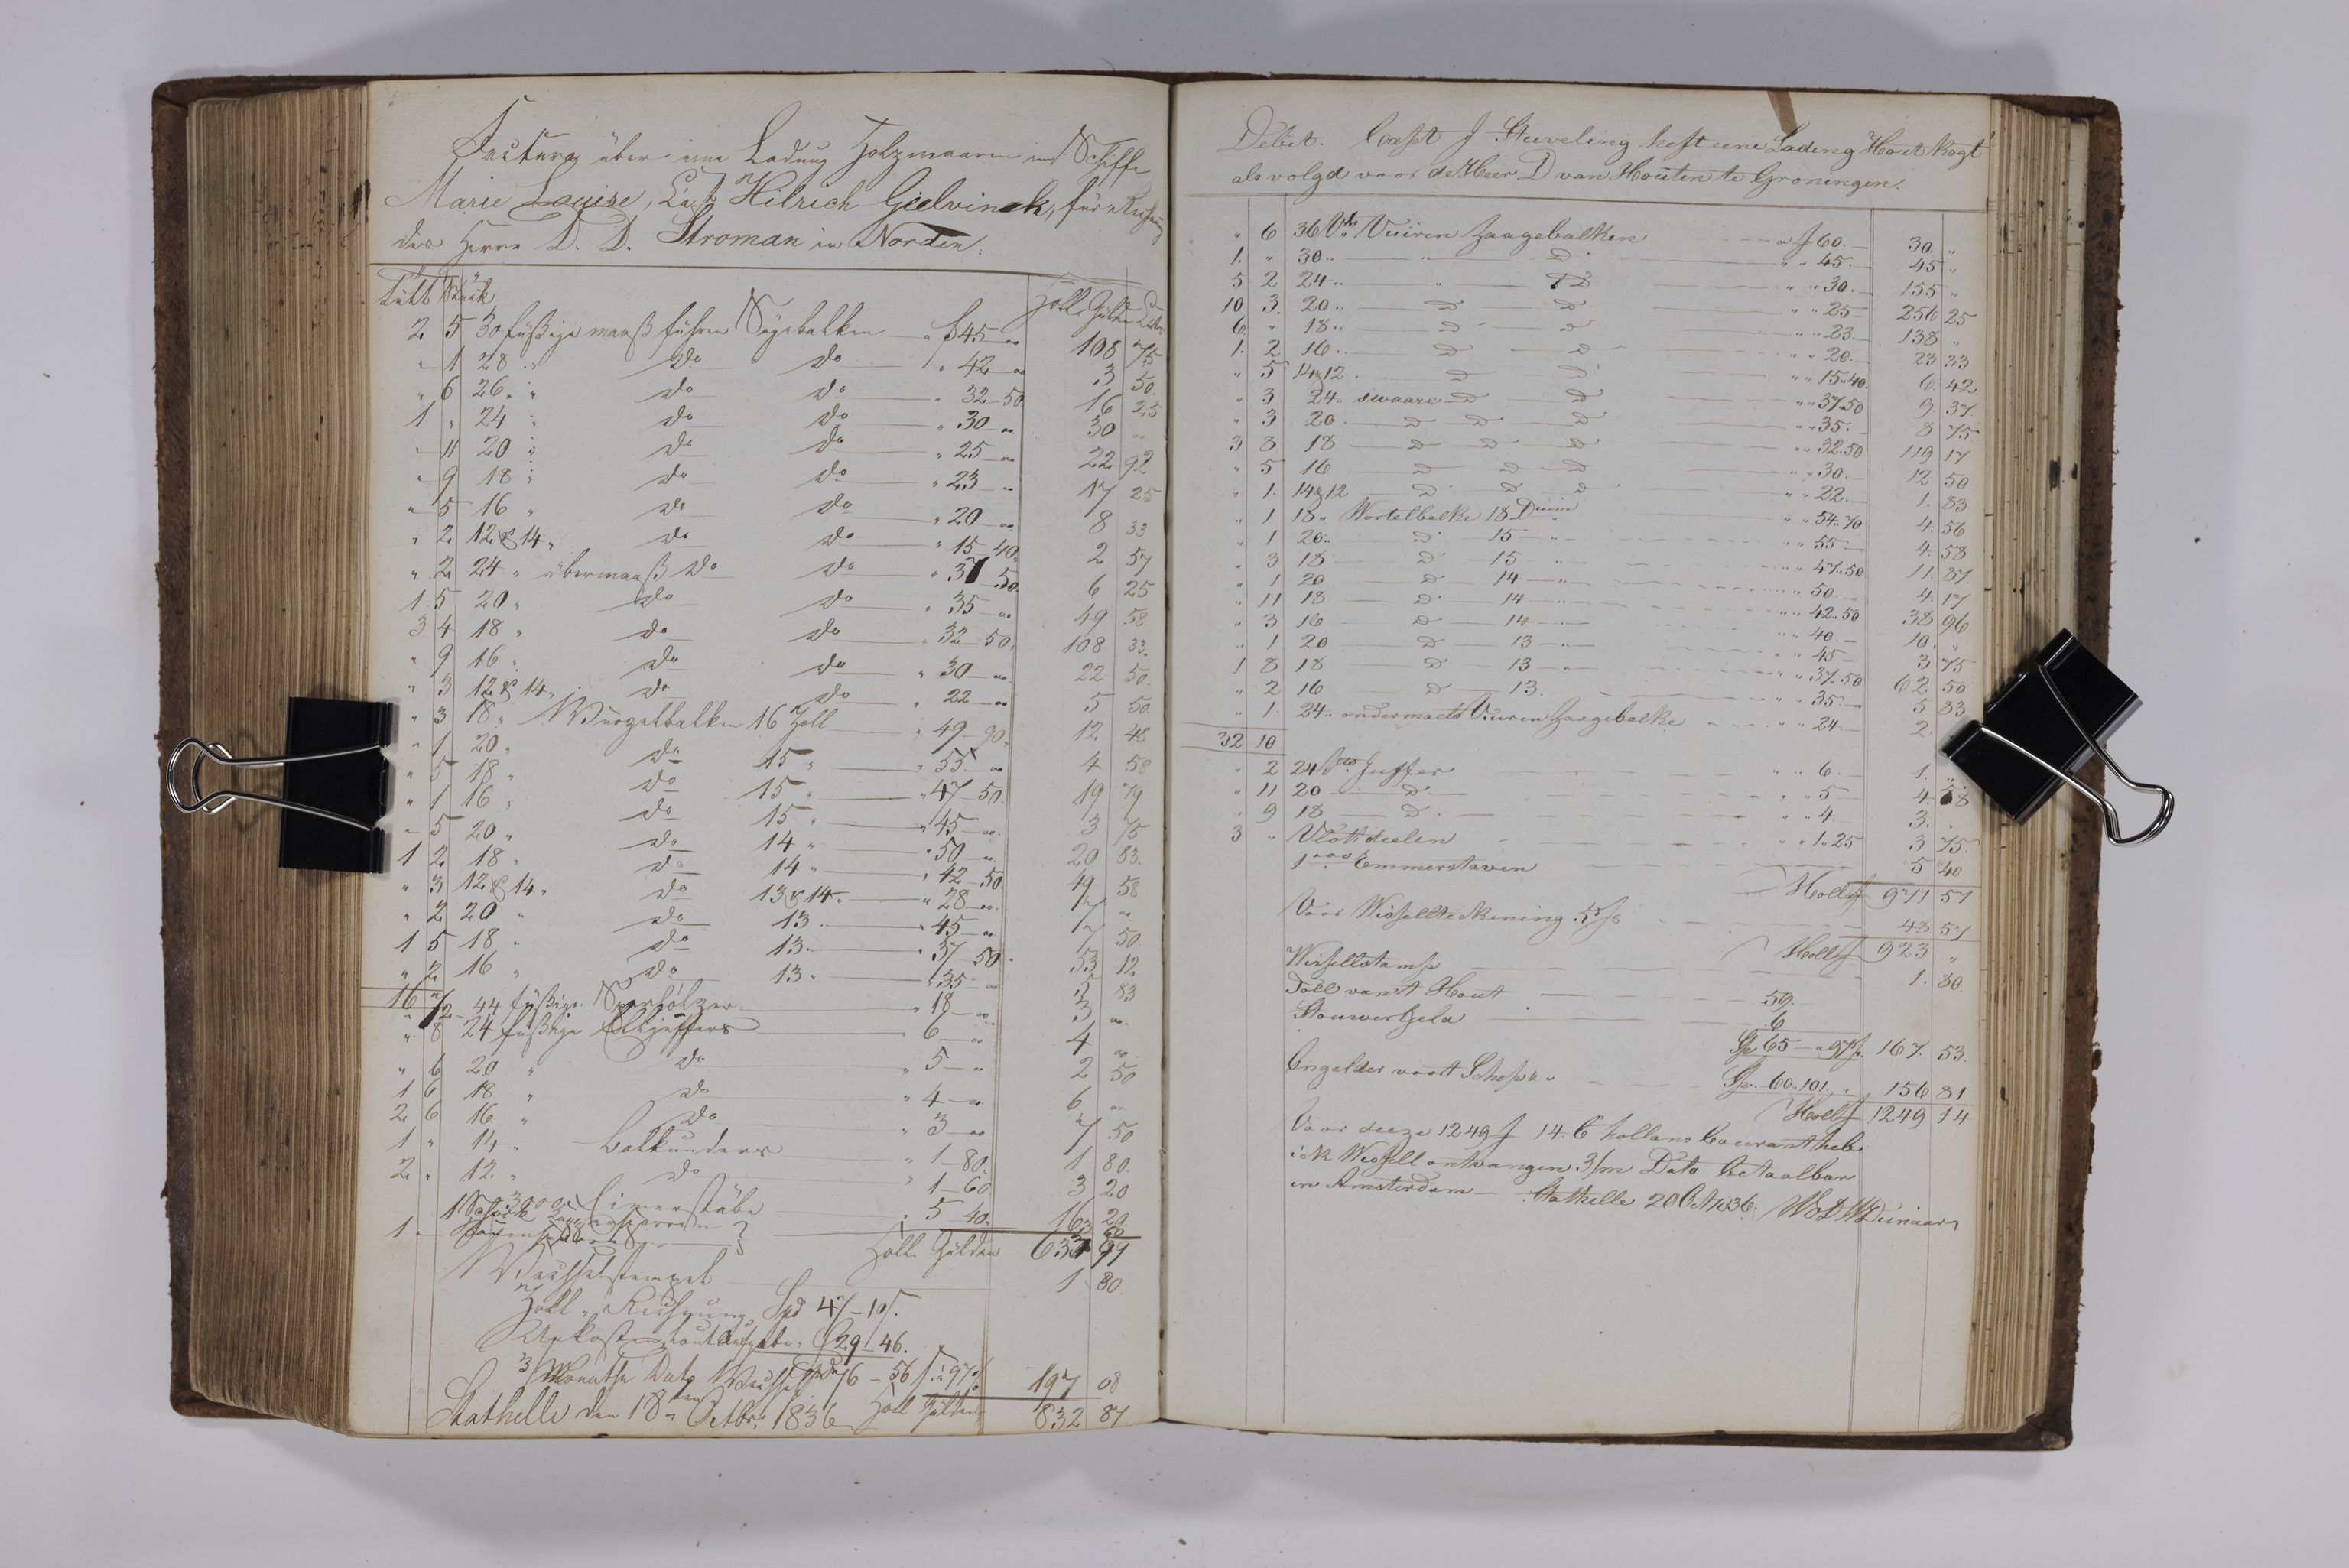 Factura über eine Ladung Holzwaaren ins Schiffe
Marie Louise, Capt. Hilrich Gielvinck, für Rechnung
des Herrn D. D. Stroman in Norden.
Tült Stück Holl. Gulden
2 5 30 füßige maaß führen Sägebalken " f 45 " 108 75
" 1 28 " do do " 42 " 3 50
" 6 26 " do do " 32 50 16 25
1 " 24 " do do " 30 " 30 "
" 11 20 " do do " 25 " 22 92
" 9 18 " do do " 23 " 17 25
" 5 16 " do do " 20 " 8 33
" 2 12 & 14 " do do " 15 40 2 57
" 2 24 " übermaaß do do " 37 50 6 25
1 5 20 " do do " 35 " 49 58
3 4 18 " do do " 32 50 108 33
" 9 16 " do do " 30 " 22 50
" 3 12 & 14 " do do " 22 " 5 50
" 3 18 " Wurzelbalken 16 Zoll " 49 90 12 48
" 1 20 " do 15 " " 55 " 4 58
" 5 18 " do 15 " " 47 50 19 79
" 1 16 " do 15 " " 45 " 3 75
" 5 20 " do 14 " " 50 " 20 83
1 2 18 " do 14 " " 42 50 49 58
" 3 12 & 14 " do 13 & 14 " " 28 " 7 "
" 2 20 " do 13 " " 45 " 7 50
1 5 18 " do 13 " " 37 50 53 12
" 2 16 " do 13 " " 35 " 5 83
16 " 2 44 füßige Sparhölzer " 18 " 3 "
" 8 24 füßige Juffers 6 " 4 "
" 6 20 " do " 5 " 2 50
1 6 18 " do " 4 " 6 "
2 6 16 " do " 3 " 7 50
1 " 14 " Bolkunders " 1 80 1 80
2 " 12 " do " 1 60 3 20
3000 Eimerstäbe " 5 40 16 20
1 "
Holl Gulden 99
Wechselstempel 1 80
Zoll Rechnung Spd 47 10
Unkosten laut Aufgabe " 29 46
3 Monathe Dato Wechsel Spd 76 56 a 97 197 08
Stathelle den 18ten Octbr. 1836 Holl Gulden 832 87
Debit. Capt J Stuveling heft eene Lading Hout kogt
als volgd voor de Heer D van Houten te Groningen.
" 6 36 Vts Vuiren Zaagebalken a f 60. 30 "
1. " 30 " " D " " 45. 45 "
5 2 24 " " D " " 30. 155 "
10 3 20 " D D " " 25 256 25
6 " 18 " D D " " 23. 138 "
1. 2 16 " D D " " 20. 23 33
" 5 14 & 12 " D D " " 15.40. 6. 42
" 3 24 " swaare D D " " 37.50 9. 37.
" 3 20 " D D D " " 35. 8 75
3 8 18 D D D " " 32.50 119 17
" 5 16 D D D " " 30. 12 50
" 1. 14 & 12 D D D " " 22. 1. 83
" 1 18 " Wortelbalke 18 Duim " " 54.70 4. 56
" 1 20 " D 15 " " " 55 4. 58
" 3 18 D 15 " " " 47.50 11. 87.
" 1 20 D 14 " " " 50. 4. 17
" 11 18 D 14 " " " 42.50 38 96
" 3 16 D 14 " " " 40. 10. "
" 1 20 D 13 " " " 45 3 75
1 8 18 D 13 " " " 37.50 62 50
" 2 16 D 13. " " 35. 5 83
" 1. 24 " ondermaets Vuuren Zaagebalke " " 24 2.
32 10
" 2 24 Vts Juffer " " 6. 1. "
" 11 20 D. " " 5 4. 58
" 9 18 D. " " 4 3.
3 " Vlottdeelen " " 1.25 3 75
1000 Emmerstaven 5 40
Hollf 971 57
Voor Wisseltekening 5 48 57
Hollf 923 "
Wisseltstamp 1. 80.
Toll van't Hout 59.
Stouwergeld 6
Sp 65 a 97 167. 53.
Ongelder voort Schep Sp. 60. 101. 156 81
Hollf 1249 14
Voor deeze 1249 f 14. C hollans Courant heb
ick Wissell ontvangen 3/m Dato betaalbar
in Amsterdam Stathelle 20 Oct 1836.